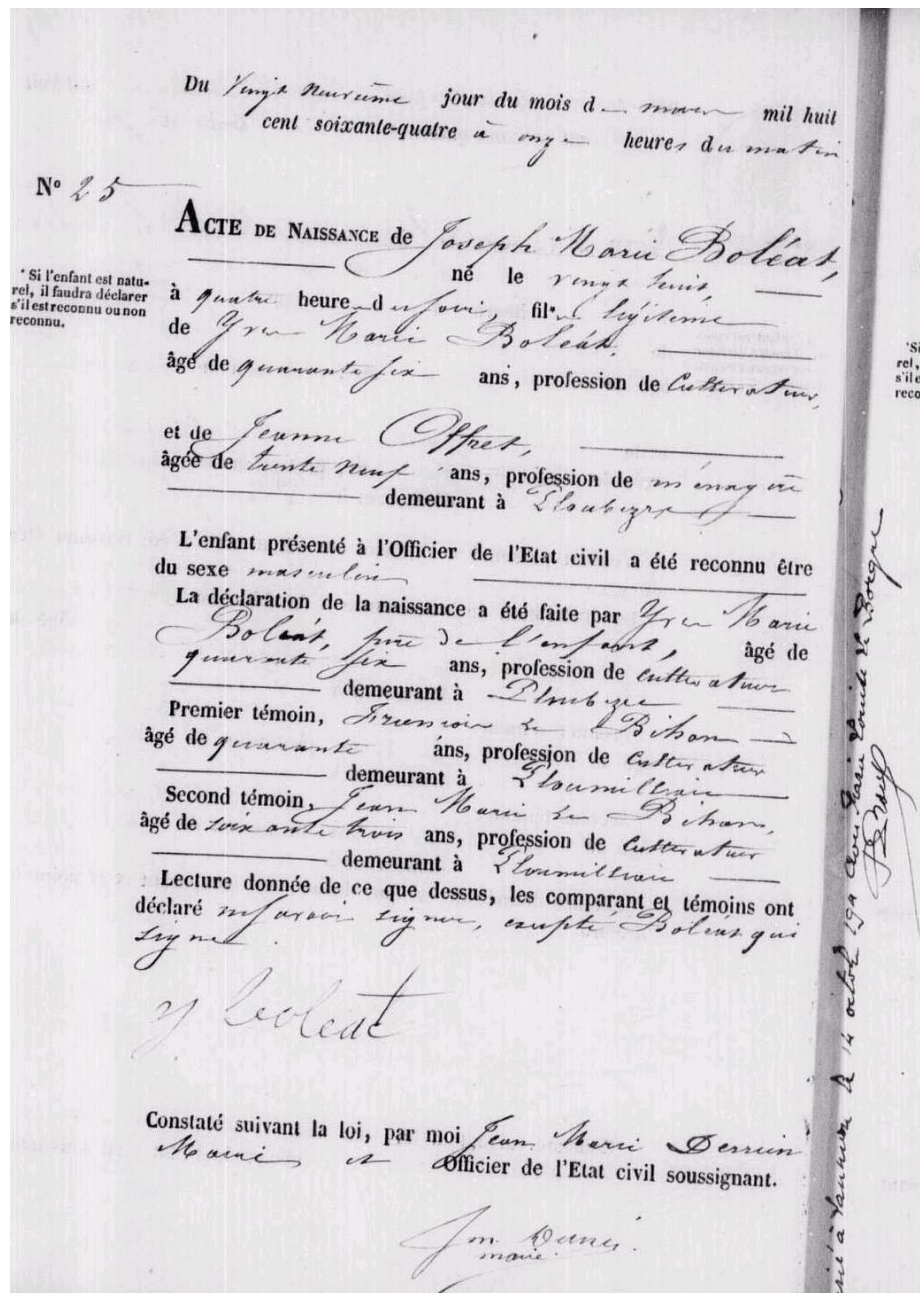 Du vingt neuvième jour du mois de mars mil huit
cent soixante-quatre à onze heures du matin
N° 25
ACTE DE NAISSANCE de Joseph Marie Boléat,
né le vingt huit,
* Si l'enfant est natu-
rel, il faudra déclarer
s'il est reconnu ou non
reconnu.
à quatre heure du soir, fils légitime
de Yves Marie Boléat,
âgé de quarante six ans, profession de Cultivateur,
et de Jeanne Offret,
âgée de trente neuf ans, profession de ménagère
demeurant à Ploubezre
L'enfant présenté à l'Officier de l'Etat civil a été reconnu être
du sexe masculin
La déclaration de la naissance a été faite par Yves Marie
Boléat, père de l'enfant, âgé de
quarante six ans, profession de Cultivateur
demeurant à Ploubezre
Premier témoin, François Le Bihan
âgé de quarante ans, profession de Cultivateur
demeurant à Ploumilliau
Second témoin, Jean Marie Le Bihan,
âgé de soixante trois ans, profession de Cultivateur
demeurant à Ploumilliau
Lecture donnée de ce que dessus, les comparant et témoins ont
déclaré ne savoir signer, excepté Boléat qui
signe
y boleat
Constaté suivant la loi, par moi Jean Marie Derrien
Maire et Officier de l'Etat civil soussignant.
maire
à Lannion le 14 octobre avec Marie Louise Le
*Si
rel,
s'il e
reco